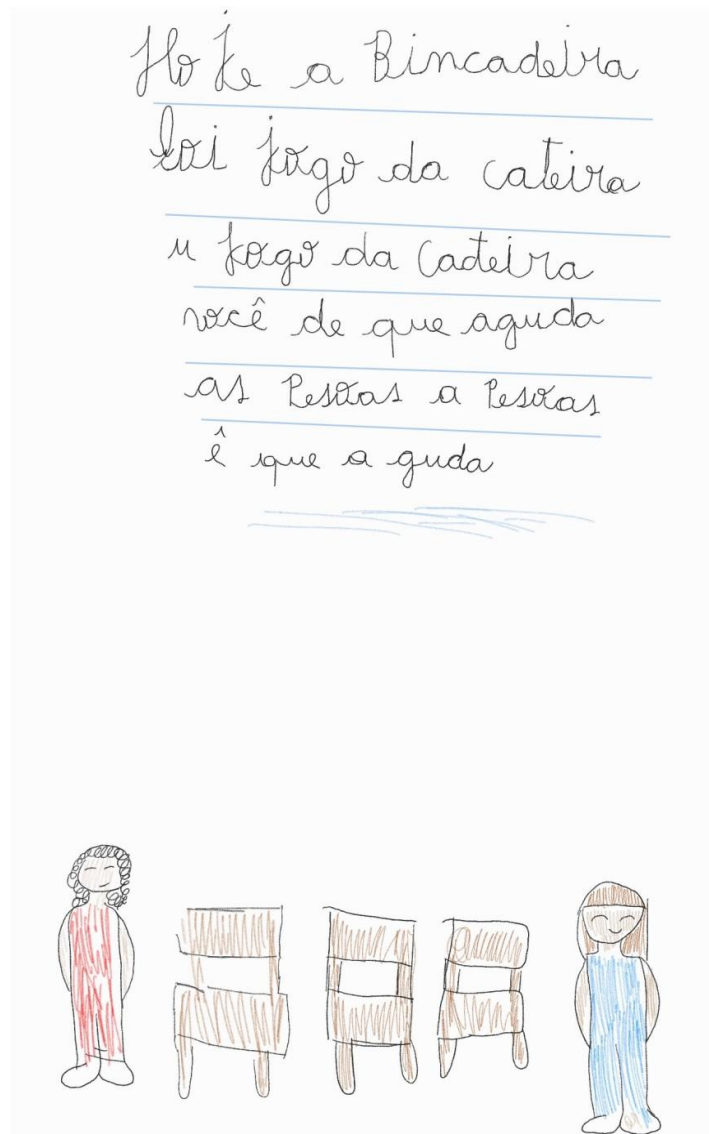 Hoje a Bincadeira
foi jogo da cateira
u jogo da Cadteira
você de que aguda
as Pesoas a Pesoas
ê que a guda